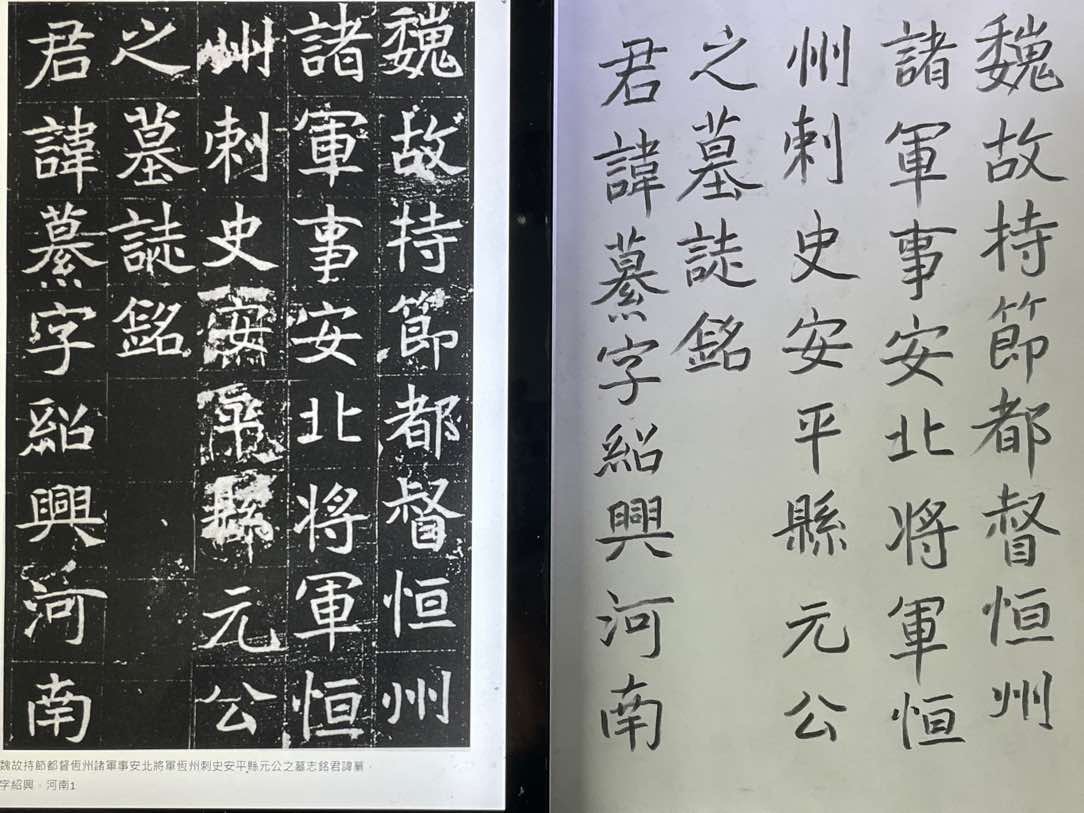 魏故持節都督恒州
諸軍事安北将軍恒
州刺史安平縣元公
之墓誌銘
君諱纂字紹興河南
魏故持節都督恆州諸軍事安北將軍恆州刺史安平縣元公之墓志銘君諱纂，
字紹興，河南1
魏故持節都督恒州
諸軍事安北将軍恒
州刺史安平縣元公
之墓誌銘
君諱纂字紹興河南